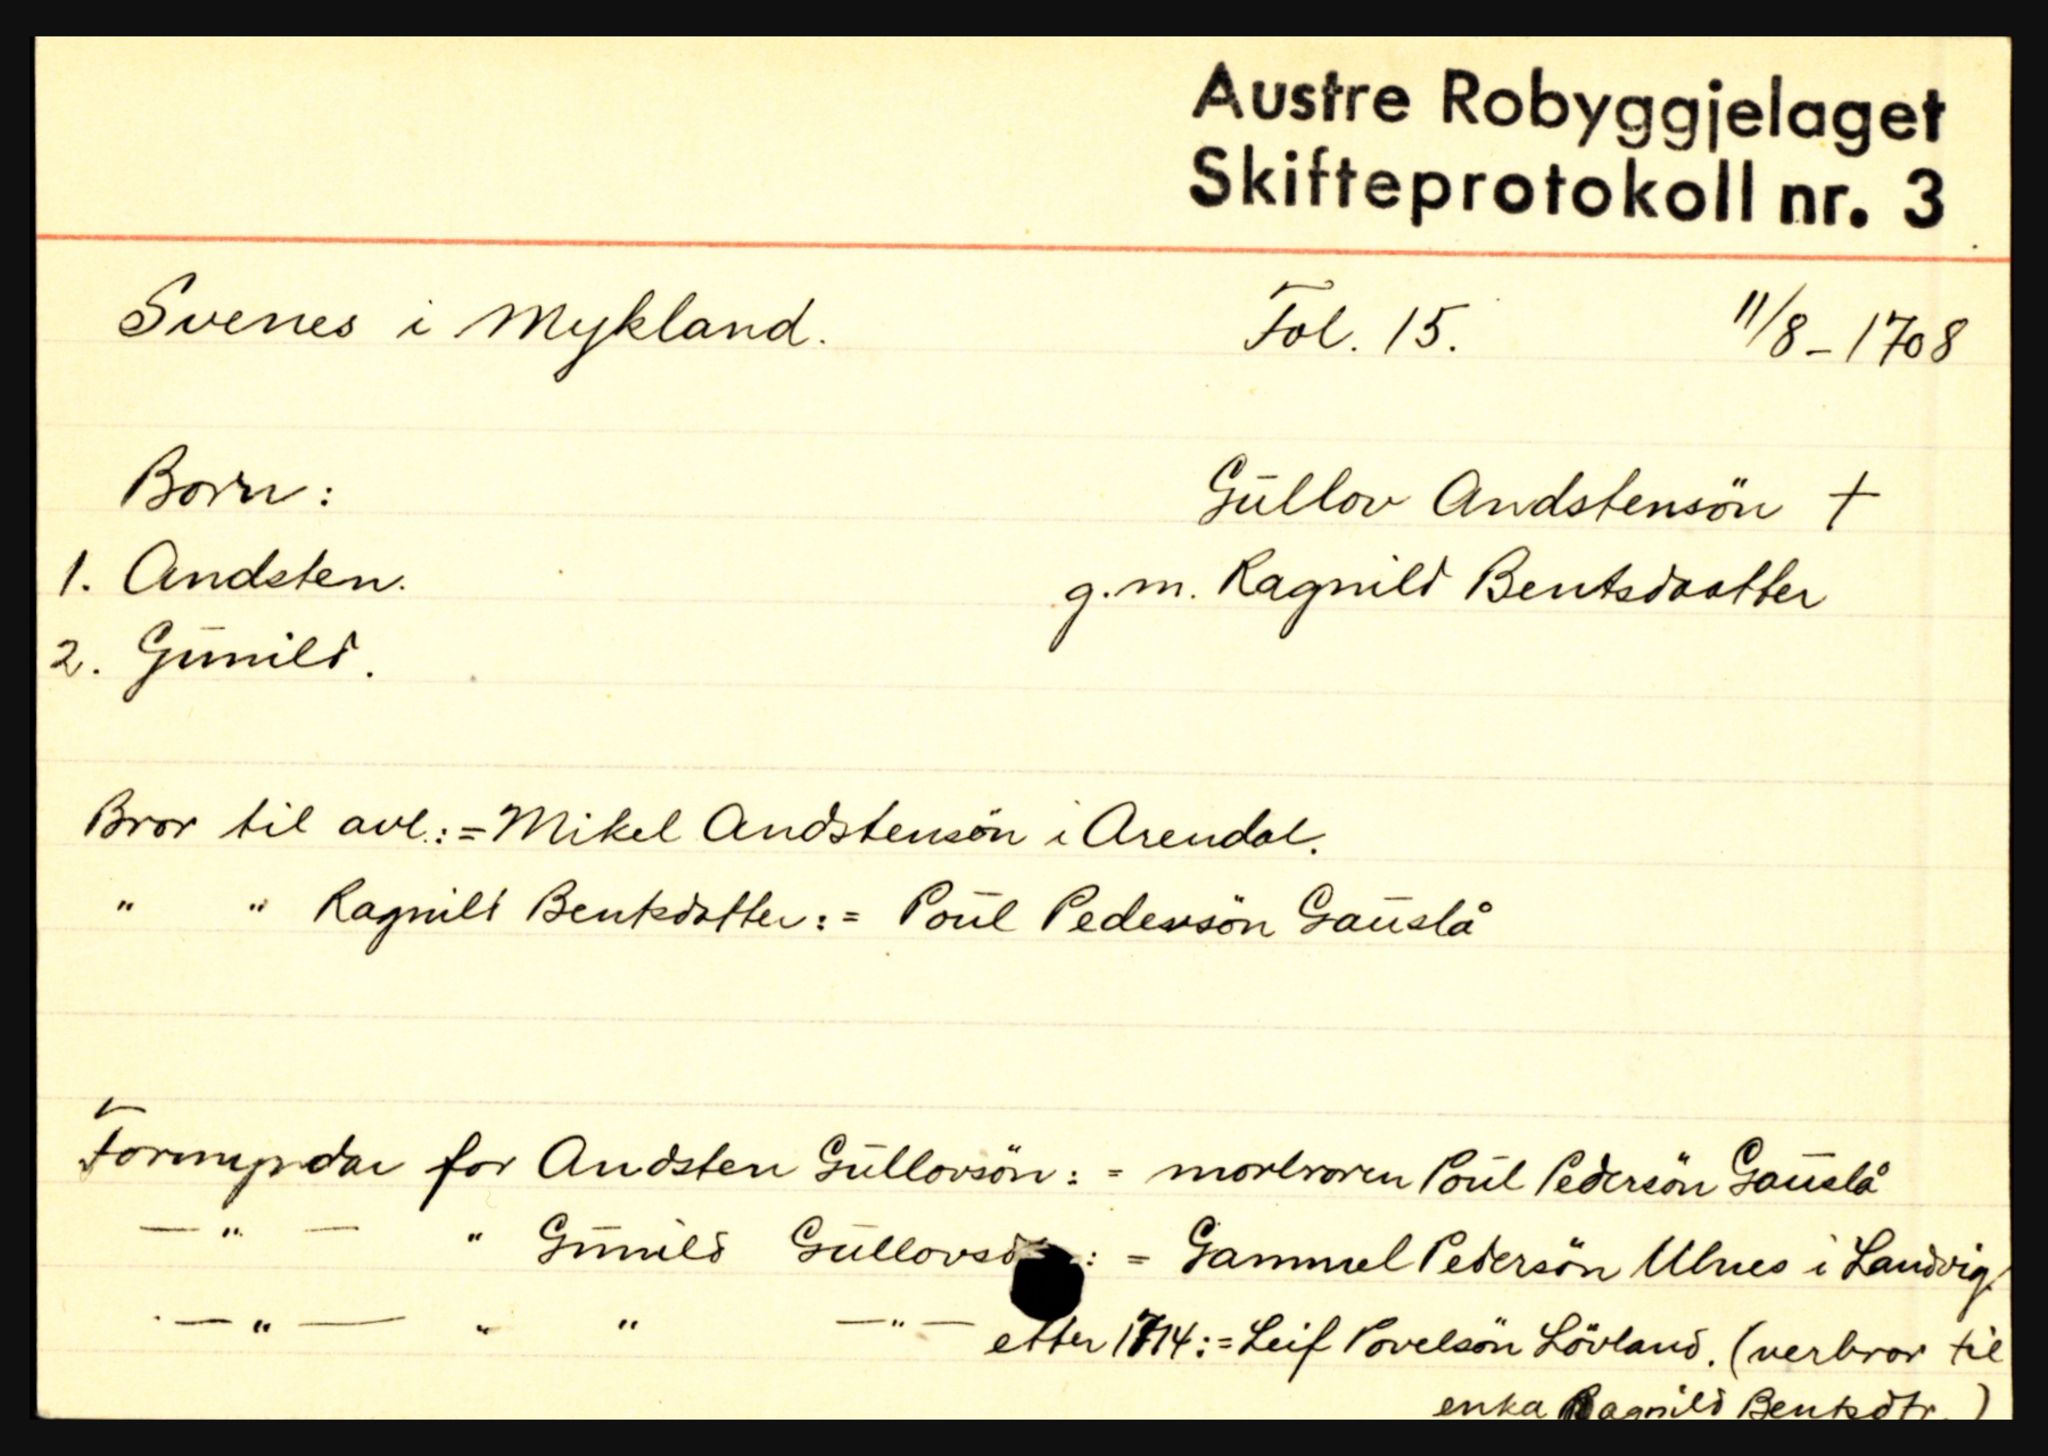 Austre Robyggjelaget
Skifteprotokoll nr. 3
Svenes i Mykland. Fol. 15. 11/8-1708
Born: Gūllov Andstensön †
1. Andsten. g.m. Ragnild Bentsdaatter
2. Gūnild.
Bror til avl.:= Mikel Andstensön i Arendal.
" " Ragnild Bentsdatter:= Poūl Pedersön Gaūslå
Formyndar for Andsten Gūllovsön:= morbroren Poūl Pedersön Gaūslå
—"— " Gūnild := Gammel Pedersön Ulnes i Landvig.
—"— " " —"— etter 1714:= Leif Povelsön Lövland. (verbror til
enka Ragnild Bentsdtr.)